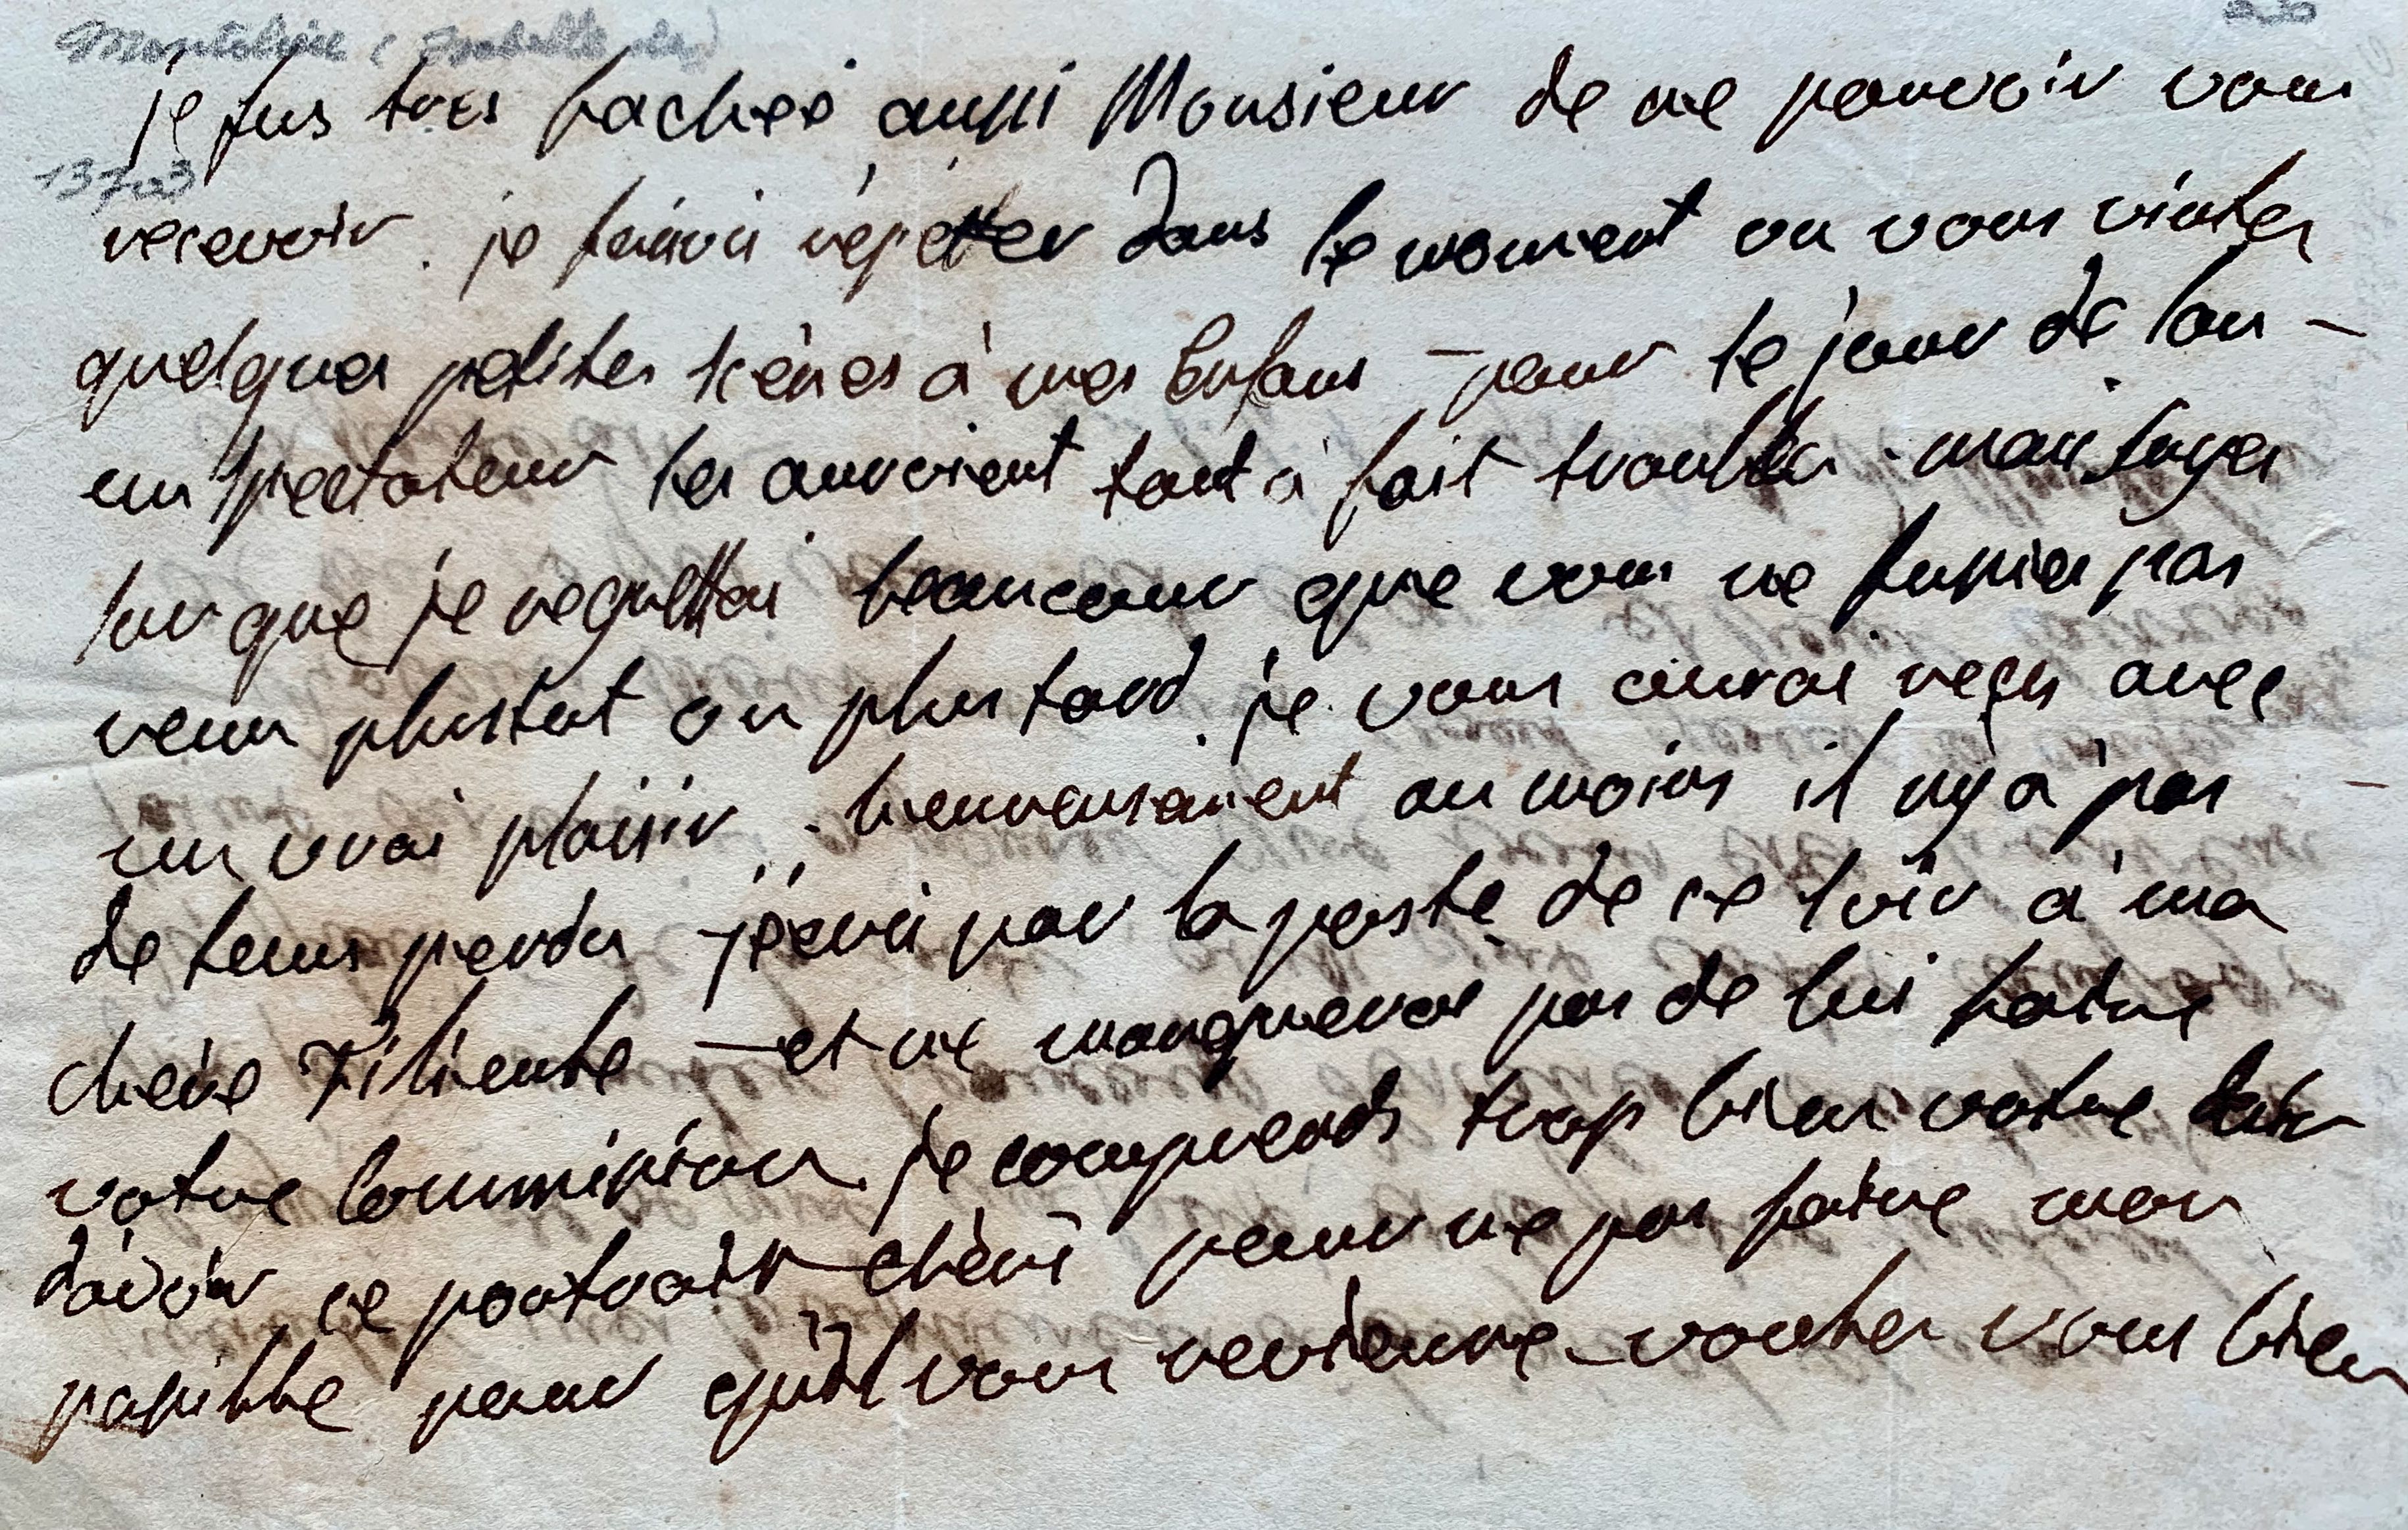 Montolieu (Isabelle de)
je fus tres fachée aussi Monsieur de ne pouvoir vous
13703
recevoir . je faisois répetter dans le moment ou vous vintes
quelques petites scènes à mes Enfans – pour le jour de lan –
un spectateur les auroient tout à fait troublés . mais soyes
sur que je regrettai beaucoup que vous ne fussies pas
venu plustot ou plus tard . je vous aurai reçu avec
un vrai plaisir . heureusement au moins il ny a pas
de tems perdu – j'écris par la poste de ce soir à ma
chère – et ne manquerai pas de lui faire
votre Commission . je comprends trop bien votre desir
d'avoir ce portrait chéri pour ne pas faire mon
possible pour qu'il vous revienne – voules vous bien